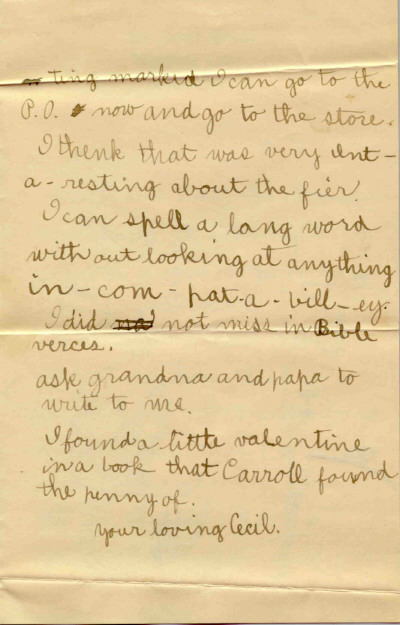 ting marked I can go to the
P.O. now and go to the store.
I thenk that was very int-
a-resting about the fier.
I can spell a lang word
with out looking at anything
in-com-pat-a-bill-ey.
I did not miss in Bible
verces.
ask grandna and papa to
write to me.
I found a little valentine
in a book that Carroll found
the penny of.
your loving Cecil.